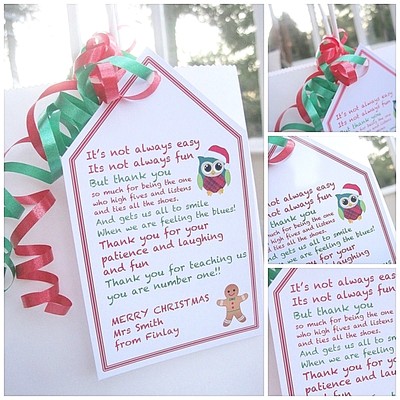 It's not always easy
Its not always fun
But thank you
so much for being the one
who high fives and listens
and ties all the shoes.
And gets us all to smile
When we are feeling the blues!
Thank you for your
patience and laughing
and fun
Thank you for teaching us
you are number one!!
MERRY CHRISTMAS
Mrs Smith
from Finlay
It's not always easy
Its not always fun
But thank you
not always easy
not always fun
thank you
much for being the one
high fives and listens
ties all the shoes.
gets us all to smile
we are feeling the blues!
you for your
It's not always easy
Its not always fun
But thank you
so much for being the one
who high fives and listens
and ties all the shoes.
And gets us all to smile
When we are feeling the
Thank you for you
patience and laugh
and fun